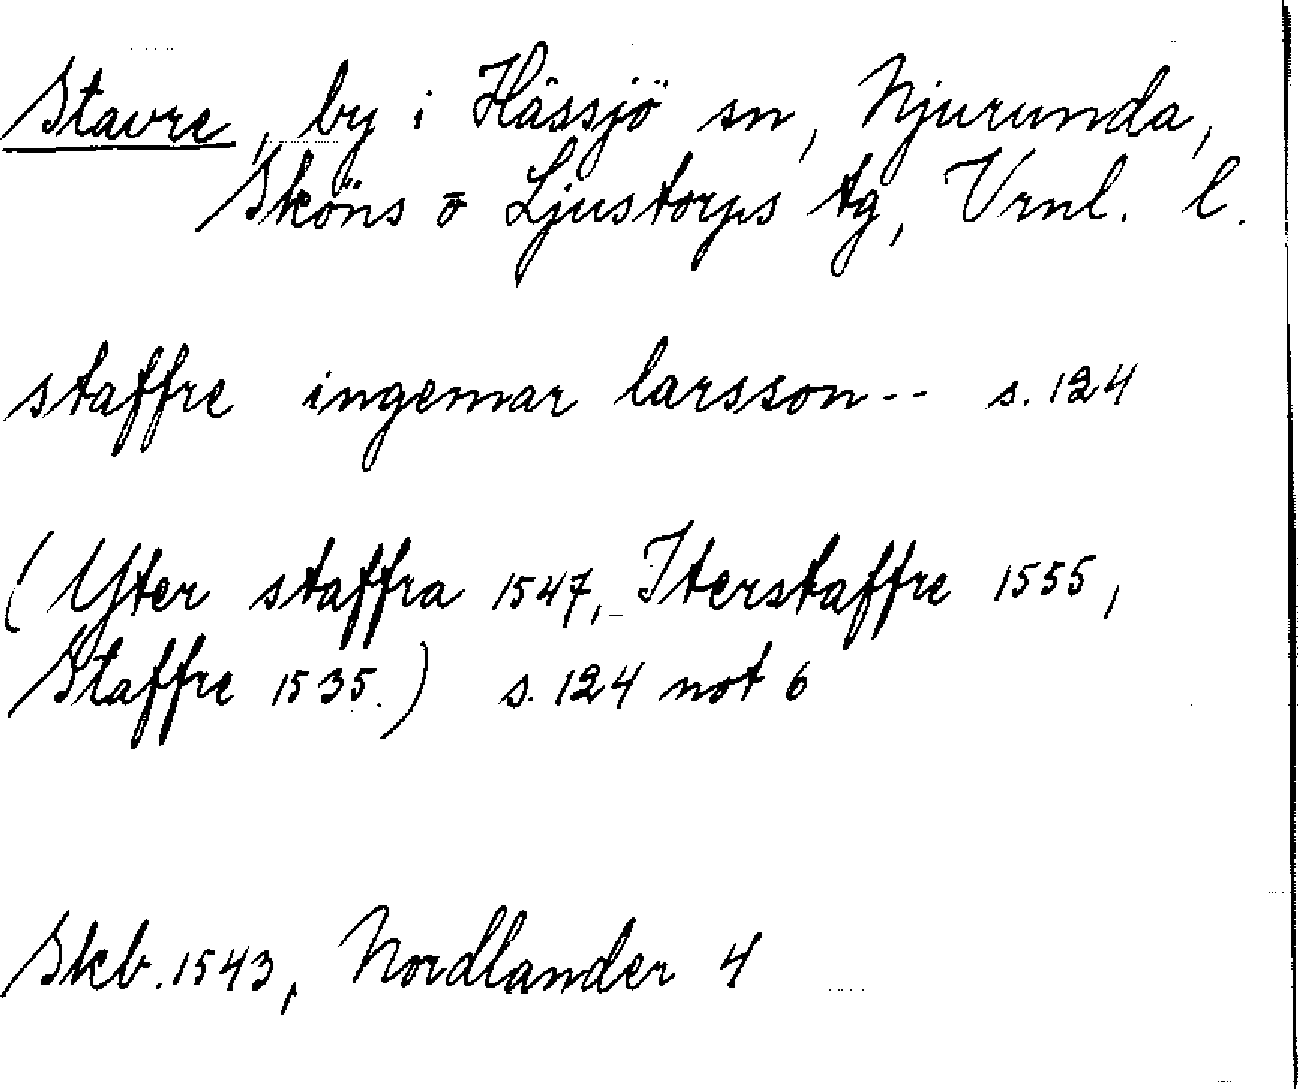 Stavre, by i Hässjö sn, Njurunda,
Sköns o Ljustorps tg, Vrnl. l.
staffre ingemar larsson-- s. 124
(Yter staffra 1547, Iterstaffre 1555,
Staffre 1535.) s. 124 not 6
Skb. 1543, Nordlander 4